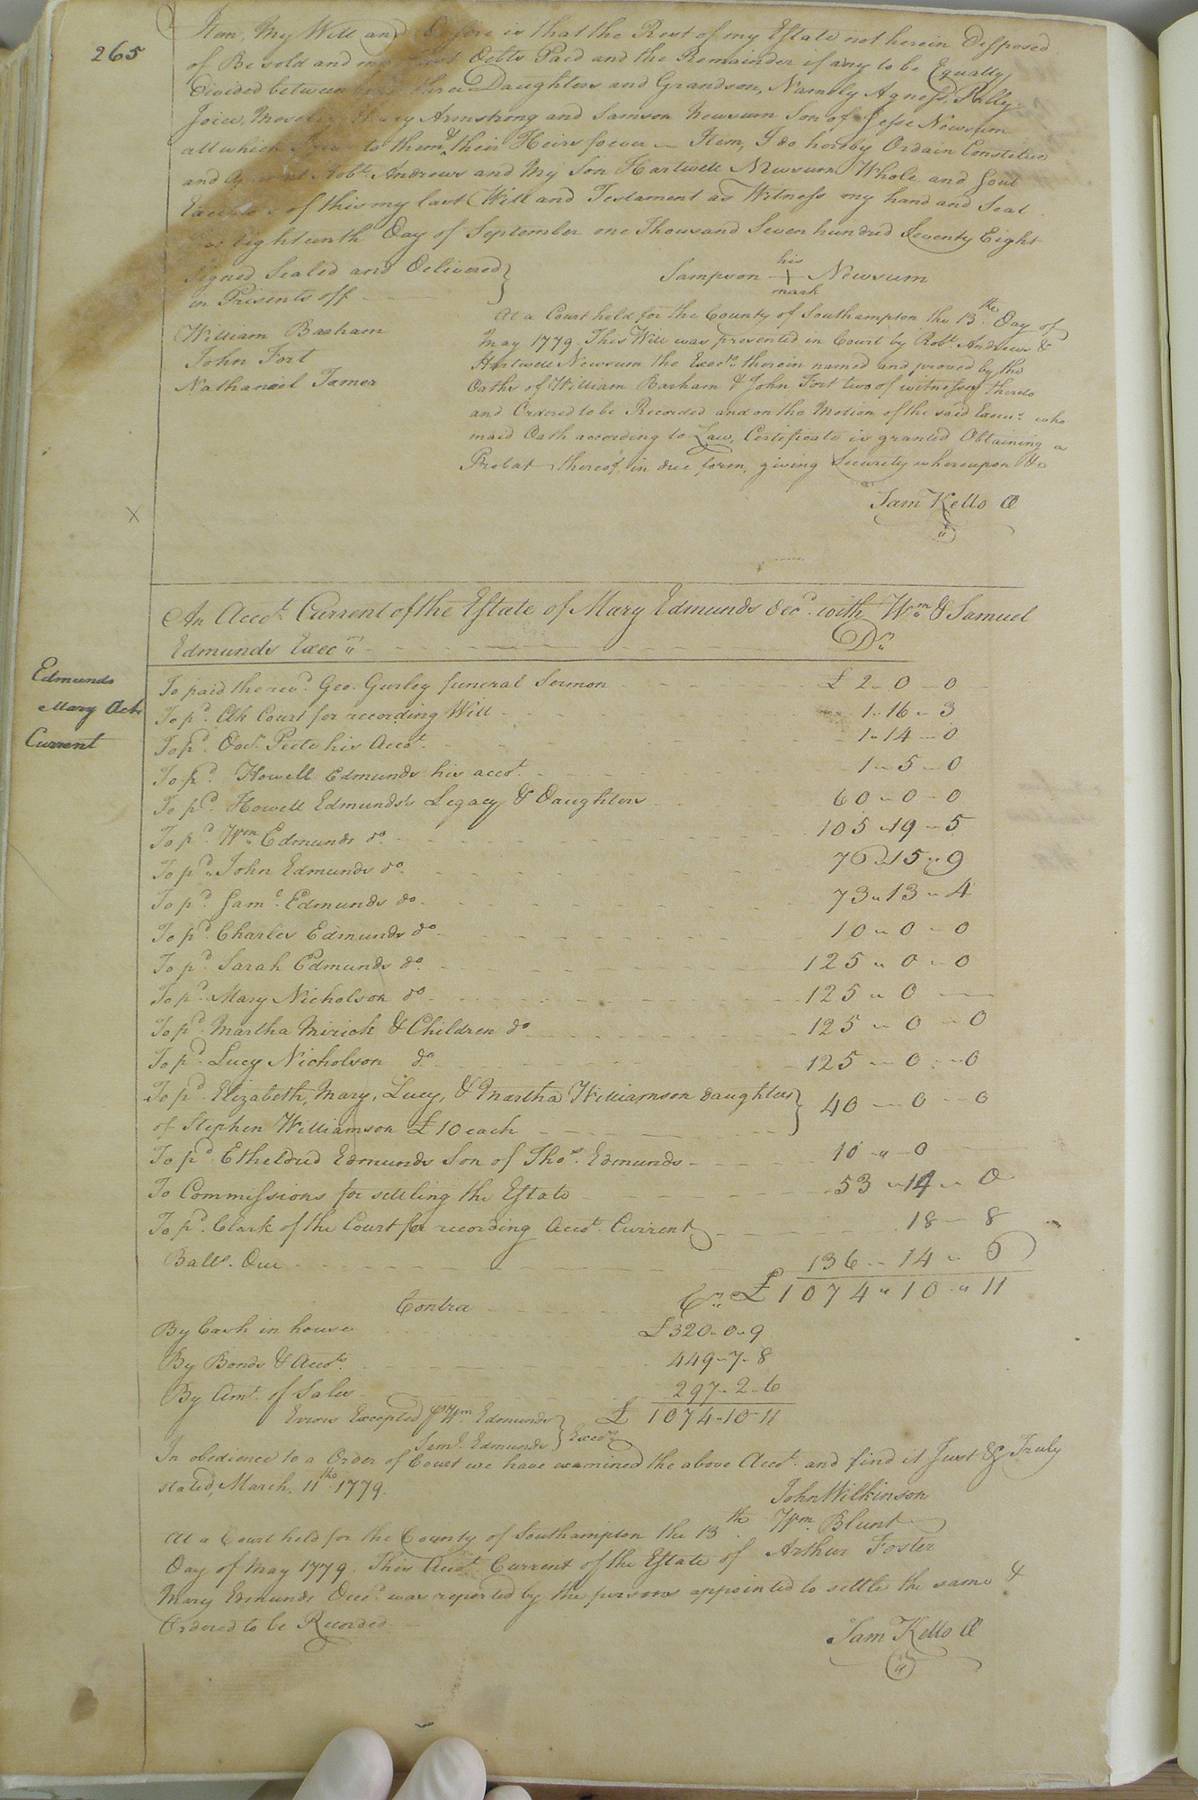 265
Item, My Will and Desire is that the Rest of my Estate not herein Disposed
of Be sold and my Just Debts Paid and the Remainder if any to be Equally
Divided between my three Daughters and Grandson, Namely Agness, Milly
Joice, Mary Armstrong and Samson Newsum Son of Jesse Newsum
all which I to them & their Heirs forever — Item, I do hereby Ordain Constitute
and Robt. Andrews and My Son Hartwell Newsum Whole and Soul
Executors of this my last Will and Testament as Witness my hand and Seal
this Eighteenth Day of September one Thousand Seven hundred Seventy Eight
Signed Sealed and Delivered
in Presents off
his
Sampson + Newsum
mark
William Basham
John Fort
Nathaniel Tamer
At a Court held for the County of Southampton the 13th. Day of
May 1779. This Will was presented in Court by Robt. Andrews &
Hartwell Newsum the Exects. therein named and proved by the
Oaths of William Basham & John Fort two of witnesses thereto
and Ordered to be Recorded and on the Motion of the said Execrs. who
maid Oath according to Law, Certificate is granted Obtaining a
Probat thereof, in due form, giving Security whereupon &c
Sam Kello C
X
An Acct. Current of the Estate of Mary Edmunds decd. with Wm. & Samuel
Edmunds Execrs. Dr.
Edmunds
Mary Act.
Current
To paid the revd. Geo. Gurley funeral Sermon £ 2 - 0 - 0
To pd. Clk Court for recording Will 1 - 16 - 3
To pd. Doct. Peete his Acct. 1 - 14 - 0
To pd. Howell Edmunds his acct. 1 - 5 - 0
To pd. Howell Edmunds's Legacy & Daughters 60 - 0 - 0
To pd. Wm. Edmunds do. 105 - 19 - 5
To pd. John Edmunds do. 76 - 15 - 9
To pd. Saml. Edmunds do. 73 - 13 - 4
To pd. Charles Edmunds do. 10 - 0 - 0
To pd. Sarah Edmunds do. 125 - 0 - 0
To pd. Mary Nicholson do. 125 - 0 —
To pd. Martha Mirick & Children do 125 - 0 - 0
To pd. Lucy Nicholson do. 125 - 0 - 0
To pd. Elizabeth, Mary, Lucy, & Martha Williamson daughters
of Stephen Williamson £ 10 each 40 - 0 - 0
To pd. Etheldred Edmunds Son of Thos. Edmunds 10 - 0
To Commissions for settling the Estate 53 - 14 - 0
To pd. Clark of the Court for recording Acct. Current 18 - 8
Balle. Due 136 - 14 - 6
£ 1074 " 10 " 11
Contra Cr.
By Cash in house £ 320 - 0 - 9
By Bonds & Accts. 449 - 7 - 8
By Amt. of Sales 297 - 2 - 6
Errors Excepted pr Wm. Edmunds £ 1074 - 10 - 11
Saml. Edmunds } Execrs
In obedience to a Order of Court we have examined the above Acct. and find it Just & Truly
stated, March. 11th. 1779.
John Wilkinson
Wm. Blunt
Arthur Foster
At a Court held for the County of Southampton the 13th.
Day of May 1779. This Acct. Current of the Estate of
Mary Edmunds Decd. was reported by the persons appointed to settle the same &
Ordered to be Recorded
Sam Kello C